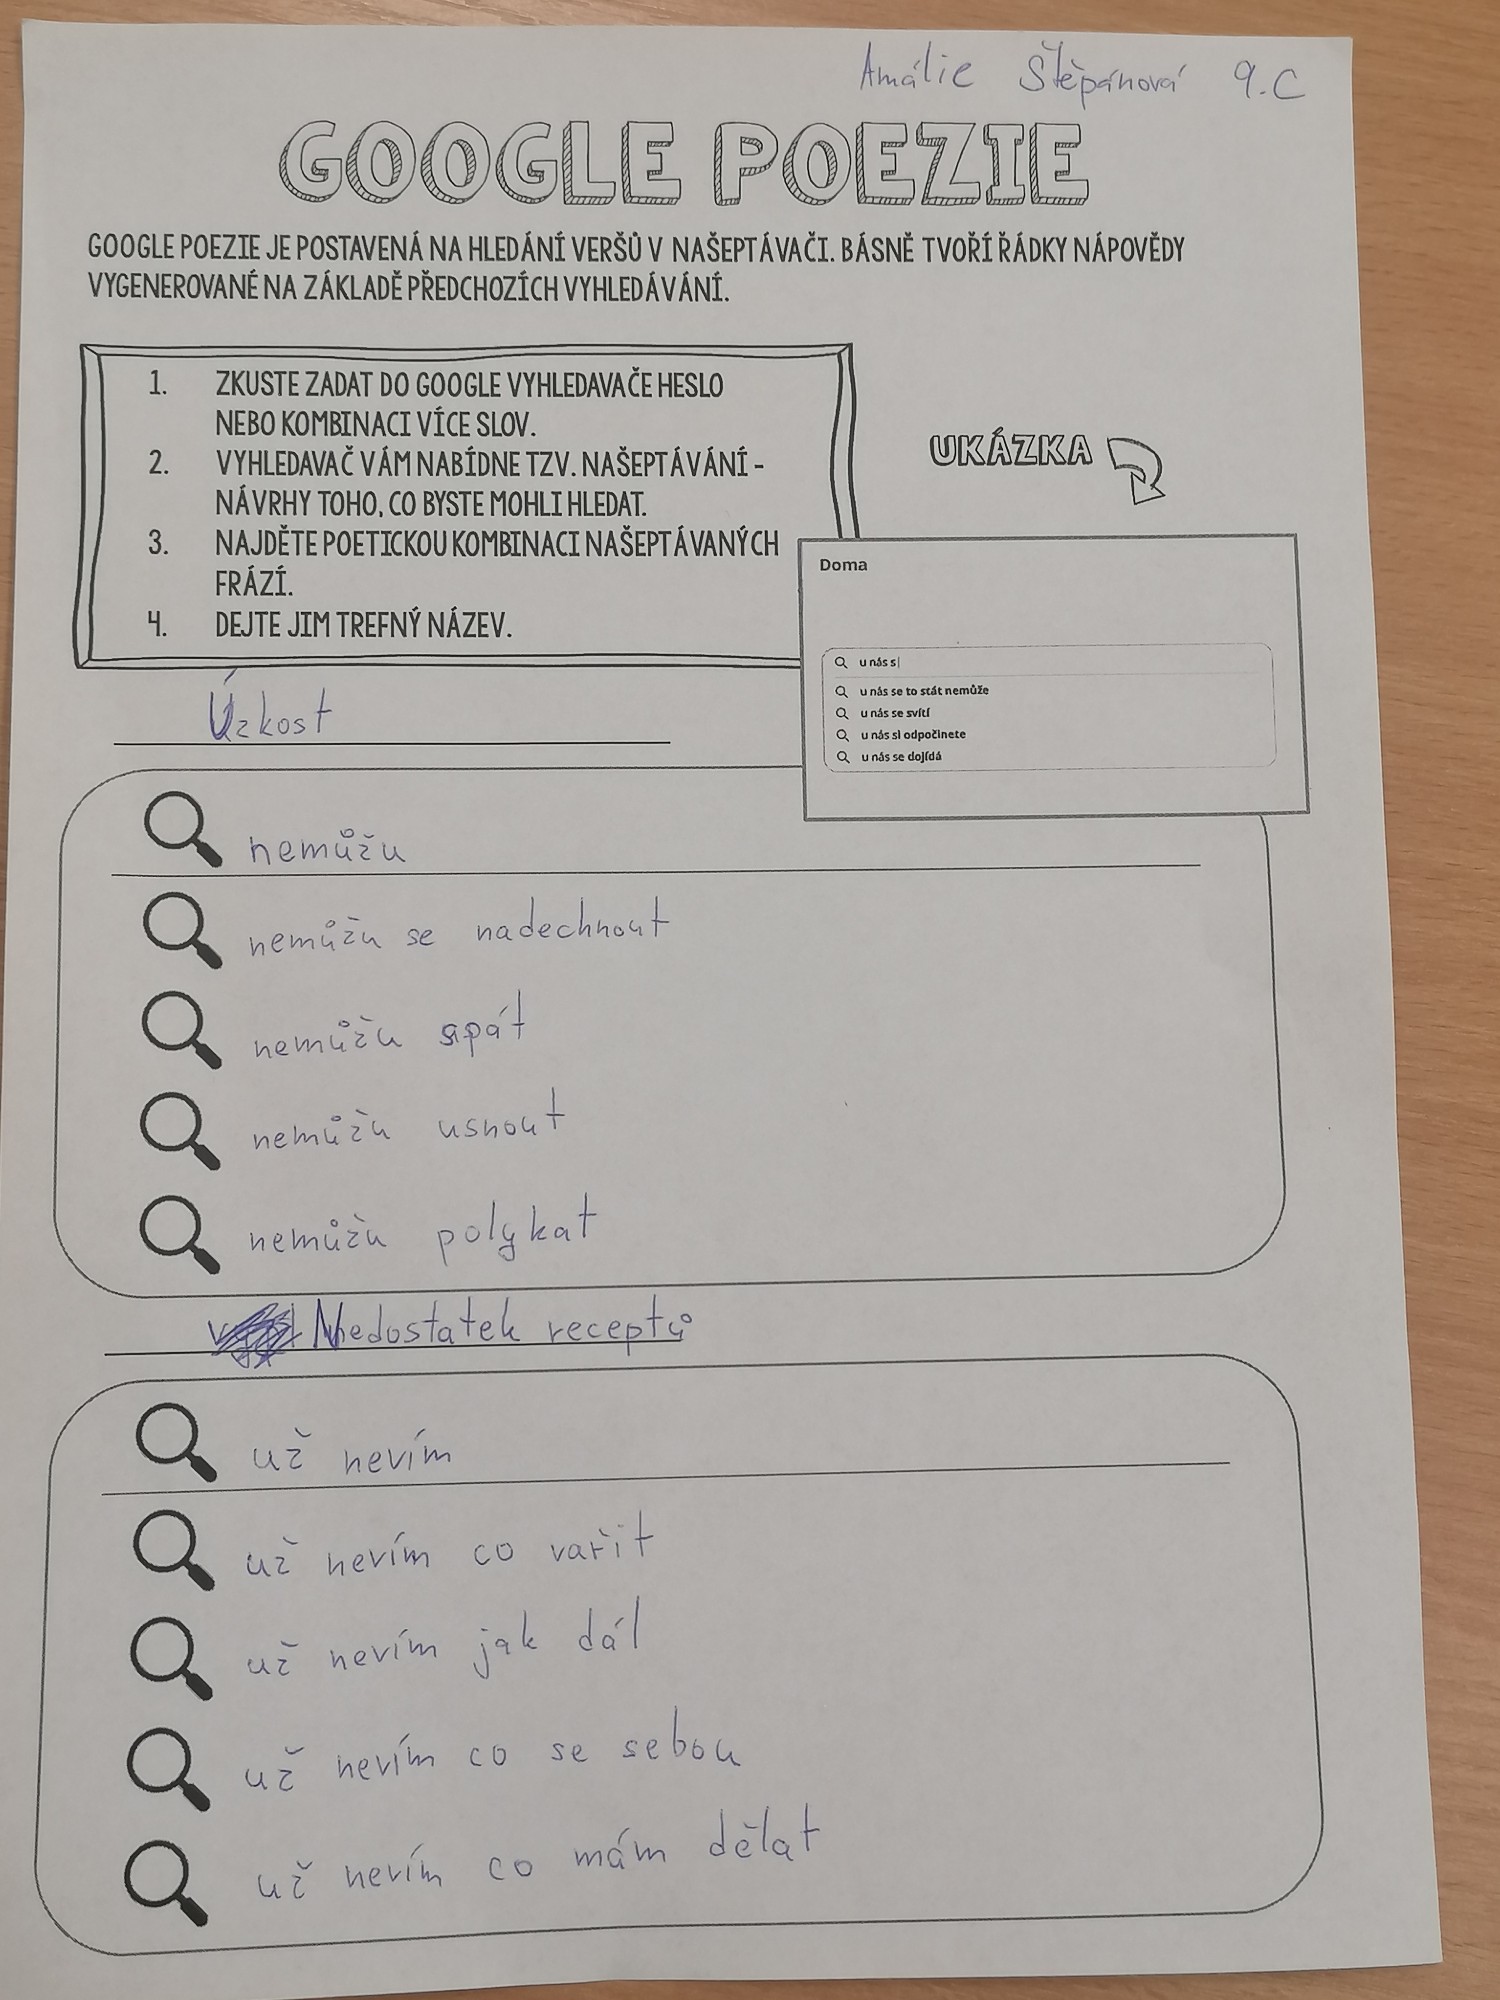 Amálie Štěpánová 9.C
GOOGLE POEZIE
GOOGLE POEZIE JE POSTAVENÁ NA HLEDÁNÍ VERŠŮ V NAŠEPTÁVAČI. BÁSNĚ TVOŘÍ ŘÁDKY NÁPOVĚDY
VYGENEROVANÉ NA ZÁKLADĚ PŘEDCHOZÍCH VYHLEDÁVÁNÍ.
1. ZKUSTE ZADAT DO GOOGLE VYHLEDAVAČE HESLO
NEBO KOMBINACI VÍCE SLOV.
2. VYHLEDAVAČ VÁM NABÍDNE TZV. NAŠEPTÁVÁNÍ -
NÁVRHY TOHO, CO BYSTE MOHLI HLEDAT.
3. NAJDĚTE POETICKOU KOMBINACI NAŠEPTÁVANÝCH
FRÁZÍ.
4. DEJTE JIM TREFNÝ NÁZEV.
UKÁZKA
Doma
u nás s|
u nás se to stát nemůže
u nás se svítí
u nás si odpočinete
u nás se dojídá
Úzkost
nemůžu
nemůžu se nadechnout
nemůžu spát
nemůžu usnout
nemůžu polykat
Nedostatek receptů
už nevím
už nevím co vařit
už nevím jak dál
už nevím co se sebou
už nevím co mám dělat